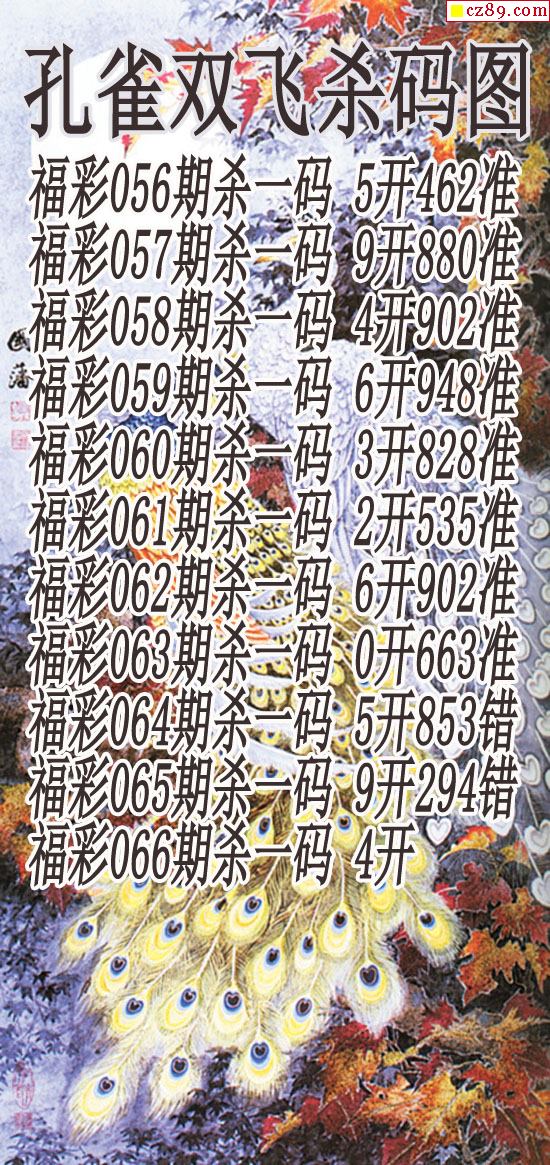 cz89.com
孔雀双飞杀码图
福彩056期杀一码 5开462准
福彩057期杀一码 9开880准
福彩058期杀一码 4开902准
福彩059期杀一码 6开948准
福彩060期杀一码 3开828准
福彩061期杀一码 2开535准
福彩062期杀一码 6开902准
福彩063期杀一码 0开663准
福彩064期杀一码 5开853错
福彩065期杀一码 9开294错
福彩066期杀一码 4开